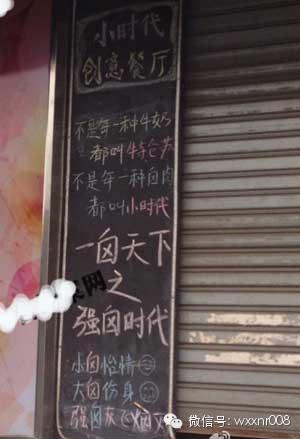 小时代
创意餐厅
不是每一种牛奶
都叫特仑苏
不是每一种囱肉
都叫小时代
一囱天下
之
强囱时代
小囱怡情
大囱伤身
强囱灰飞烟灭
微信号: wxxnr008